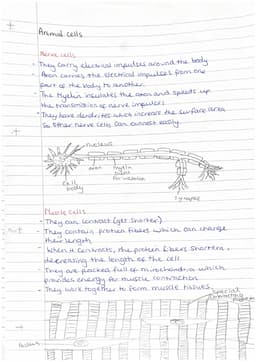 Animal cells
Nerve cells
- They carry electrical impulses around the body
- Axon carries the electrical impulses from one
part of the body to another.
- The Myelin insulates the axon and speeds up
the transmition of nerve impulses
- They have dendrites which increase the surface area
so other nerve cells can connect easily.
nucleus
axon
myelin
sheath
cell
body
synapse
Muscle cells
- They can contract (get shorter)
- They contain protien fibers which can change
their length
- When it contracts, the protien fibers shorten,
decreasing the length of the cell
- They are packed full of mitochondria which
provides energy for muscle contraction
- They work together to form muscle tissues.
Special
nucleus